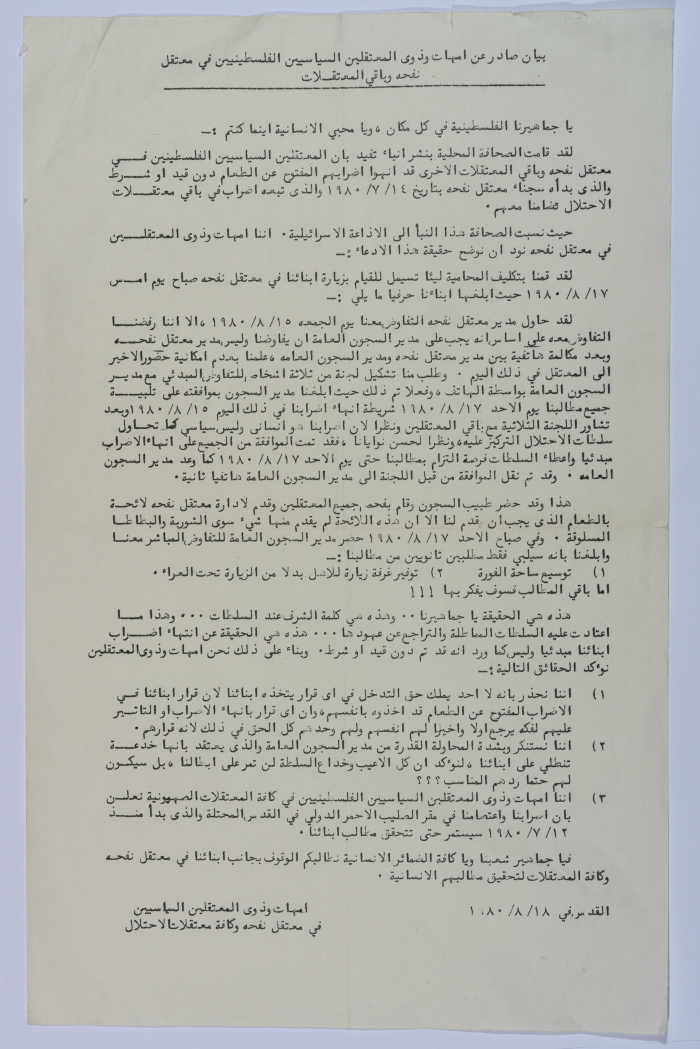 بيان صادر عن امهات وذوي المعتقلين السياسيين الفلسطينيين في معتقل
نفحه وباقي المعتقـلات
يا جماهيرنا الفلسطينية في كل مكان ، ويا محبي الانسانية اينما كنتم :ـ
لقد قامت الصحافة المحلية بنشر انباء تفيد بان المعتقلين السياسيين الفلسطينيين فــي
معتقل نفحه وباقي المعتقلات الاخرى قد انهوا اضرابهم المفتوح عن الطعام دون قيد او شــرط
والذى بدأه سجناء معتقل نفحه بتاريخ ١٤/ ٧/ ١٩٨٠ والذى تبعه اضراب في باقي معتقــلات
الاحتلال تضامنا معهم ٠
حيث نسبت الصحافة هذا النبأ الى الاذاعة الاسرائيلية ٠ اننا امهات وذوي المعتقلــين
في معتقل نفحه نود ان نوضح حقيقة هذا الادعاء :ـ
لقد قمنا بتكليف المحامية ليئا تسيمل للقيام بزيارة ابنائنا في معتقل نفحه صباح يوم امـس
١٧/ ٨/ ١٩٨٠ حيث ابلغها ابناءنا حرفيا ما يلي :ـ
لقد حاول مدير معتقل نفحه التفاوض معنا يوم الجمعه ١٥/ ٨/ ١٩٨٠ ، الا اننا رفضنــا
التفاوض معه على اساس انه يجب على مدير السجون العامة ان يفاوضنا وليس مدير معتقل نفحــه
وبعد مكالمة هاتفية بين مدير معتقل نفحه ومدير السجون العامه ، علمنا بعدم امكانية حضور الاخير
الى المعتقل في ذلك اليوم ٠ وطلب منا تشكيل لجنة من ثلاثة اشخاص للتفاوض المبدئي مع مديـر
السجون العامة بواسطة الهاتف ، وفعلا تم ذلك حيث ابلغنا مدير السجون بموافقته على تلبيـــة
جميع مطالبنا يوم الاحد ١٧/ ٨/ ١٩٨٠ شريطة انهاء اضرابنا في ذلك اليوم ١٥/ ٨/ ١٩٨٠ وبعد
تشاور اللجنة الثلاثية مع باقي المعتقلين ونظرا لان اضرابنا هو انساني وليس سياسي كما تحــاول
سلطات الاحتلال التركيز عليه ، ونظرا لحسن نوايانا ، فقد تمت الموافقة من الجميع على انهاء الاضراب
مبدئيا واعطاء السلطات فرصة التزام بمطالبنا حتى يوم الاحد ١٧/ ٨/ ١٩٨٠ كما وعد مدير السجون
العامه ٠ وقد تم نقل الموافقة من قبل اللجنة الى مدير السجون العامة هاتفيا ثانية ٠
هذا وقد حضر طبيب السجون وقام بفحص جميع المعتقلين وقدم لادارة معتقل نفحه لائحـة
بالطعام الذى يجب أن يقدم لنا الا ان هذه اللائحة لم يقدم منها شيء سوى الشوربة والبطاطـا
المسلوقة ٠ وفي صباح الاحد ١٧/ ٨/ ١٩٨٠ حضر مدير السجون العامة للتفاوض المباشر معنــا
وابلغنا بانه سيلبي فقط مطلبين ثانويين من مطالبنا :ـ
١) توسيع ساحة الفورة ٢) توفير غرفة زيارة للاهل بدلا من الزيارة تحت العراء ٠
اما باقي المطالب فسوف يفكر بها !!!
هذه هي الحقيقة يا جماهيرنا ٠٠ وهذه هي كلمة الشرف عند السلطات ٠٠٠ وهذا مــا
اعتادت عليه السلطات المماطلة والتراجع عن عهودها ٠٠٠ هذه هي الحقيقة عن انتهاء اضــراب
ابنائنا مبدئيا وليس كما ورد انه قد تم دون قيد او شرط ٠ وبناء على ذلك نحن امهات وذوى المعتقلين
نوءكد الحقائق التالية :ـ
١) اننا نحذر بانه لا احد يملك حق التدخل في اى قرار يتخذه ابنائنا لان قرار ابنائنا فــي
الاضراب المفتوح عن الطعام قد اخذوه بانفسهم ، وان اى قرار بانهاء الاضراب او التاثــير
عليهم لفكه يرجع اولا واخيرا لهم انفسهم ولهم وحدهم كل الحق في ذلك لانه قرارهم ٠
٢) اننا نستنكر وبشدة المحاولة القذرة من مدير السجون العامة والذى يعتقد بانها خدعــة
تنطلي على ابنائنا ، لنوءكد ان كل الاعيب وخداع السلطة لن تمر على ابطالنا ، بل سيكـون
لهم حتما ردهم المناسب ؟؟؟
٣) اننا امهات وذوى المعتقلين السياسيين الفلسطينيين في كافة المعتقلات الصهيونية نعلــن
بان اضرابنا واعتصامنا في مقر الصليب الاحمر الدولي في القدس المحتلة والذى بدأ منــذ
١٢/ ٧/ ١٩٨٠ سيستمر حتى تتحقق مطالب ابنائنا ٠
فيا جماهير شعبنا ويا كافة الضمائر الانسانية نطالبكم الوقوف بجانب ابنائنا في معتقل نفحــه
وكافة المعتقلات لتحقيق مطالبهم الانسانية ٠
القدس في ١٨/ ٨/ ١٩٨٠
امهات وذوى المعتقلين السياسيين
في معتقل نفحه وكافة معتقلات الاحتلال